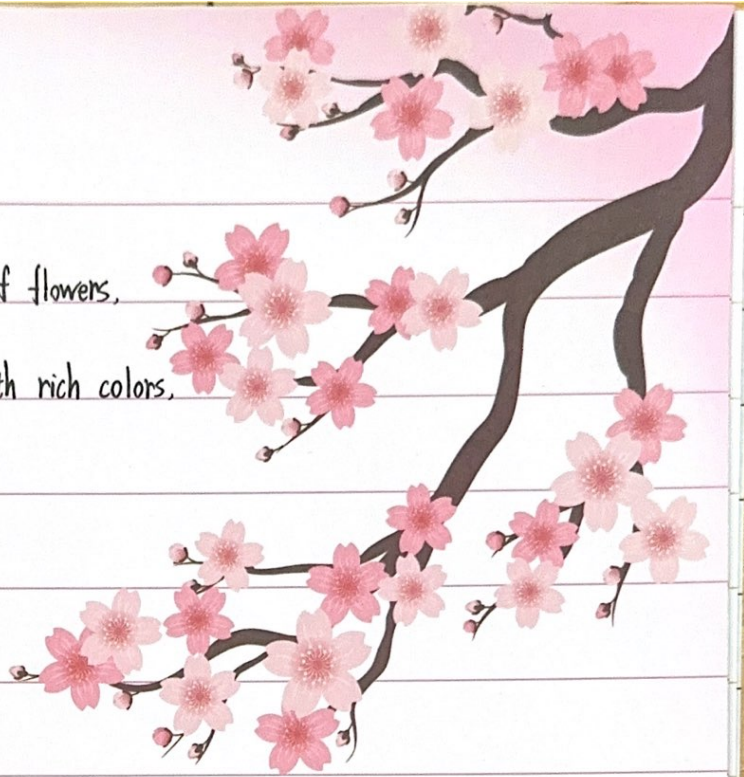 flowers,
rich colors,